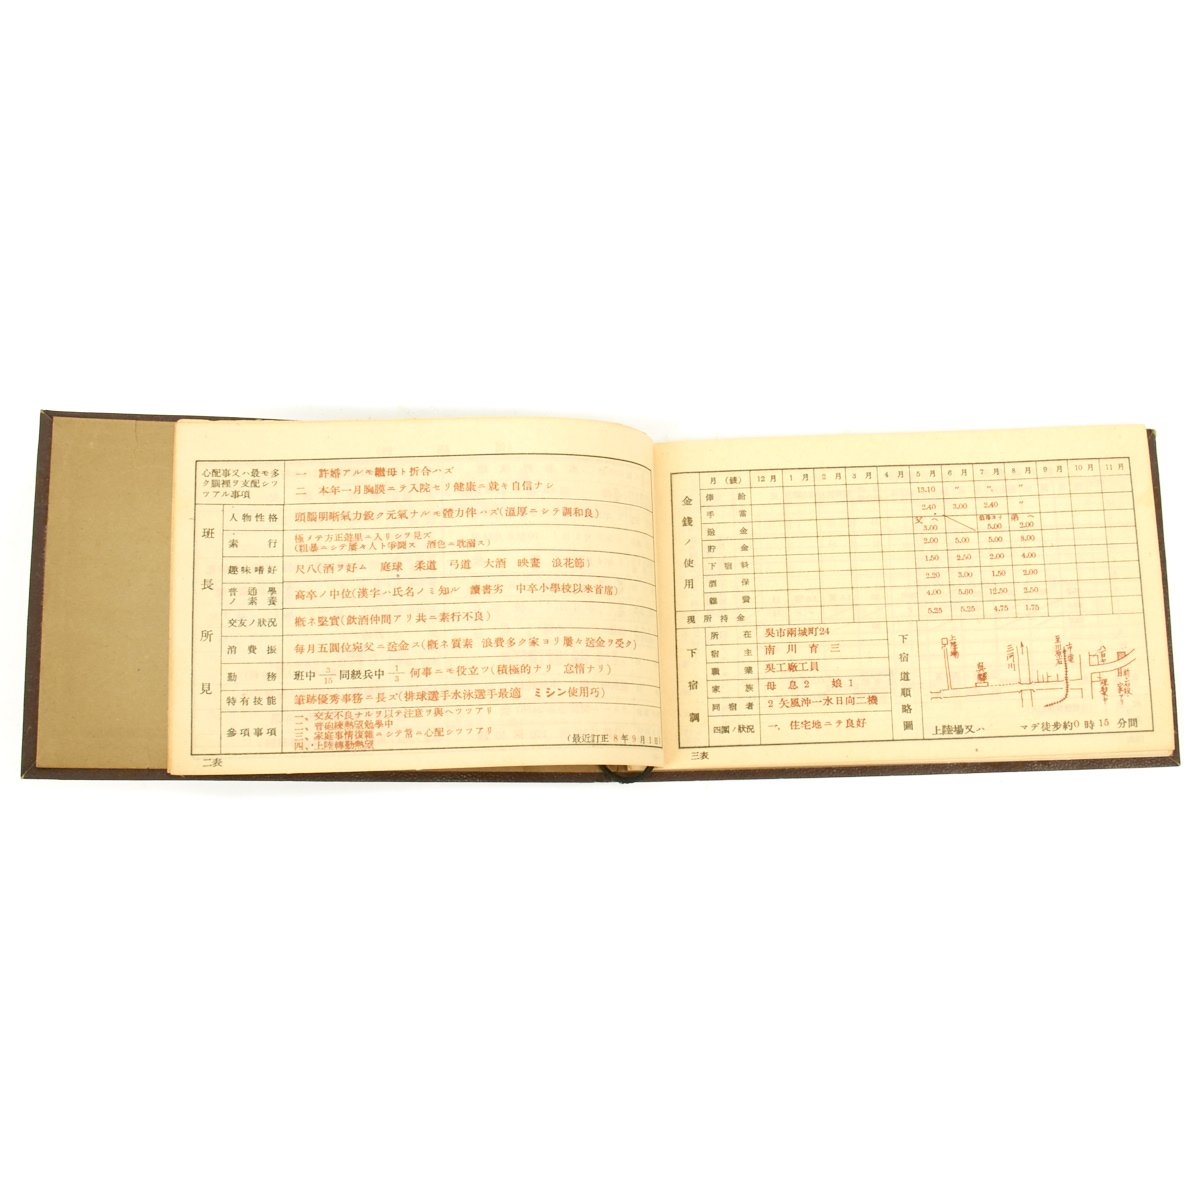 心配事又ハ最モ多
ク腦裡ヲ支配シツ
ツアル事項
一 許婚アルモ繼母ト折合ハズ
二 本年一月胸膜ニテ入院セリ健康ニ就キ自信ナシ
班長所見
人物性格
頭腦明晰氣力鋭ク元氣ナルモ體力伴ハズ(溫厚ニシテ調和良)
素行
極メテ方正遊里ニ入リシヲ見ズ
(粗暴ニシテ屢々人ト爭鬪ス 酒色ニ耽溺ス)
趣味嗜好
尺八(酒ヲ好ム 庭球 柔道 弓道 大酒 映畫 浪花節)
普通學
ノ素養
高卒ノ中位(漢字ハ氏名ノミ知ル 讀書劣 中卒小學校以來首席)
交友ノ狀況
槪ネ堅實(飲酒仲間アリ共ニ素行不良)
消費振
每月五圓位宛父ニ送金ス(槪ネ質素 浪費多ク家ヨリ屢々送金ヲ受ク)
勤務
班中3/15同級兵中1/3何事ニモ役立ツ(積極的ナリ 怠惰ナリ)
特有技能
筆跡優秀事務ニ長ズ(排球選手水泳選手最適 ミシン使用巧)
參項事項
一、交友不良ナルヲ以テ注意ヲ與ヘツツアリ
二、普砲練熱望勉學中
三、家庭事情復雜ニシテ常ニ心配シツツアリ
四、上陸轉勤熱望
(最近訂正8年9月1日)
二表
金錢ノ使用
月(號) 12月 1月 2月 3月 4月 5月 6月 7月 8月 9月 10月 11月
俸給 13.10 〃 〃 〃
手當 2.40 3.00 2.40 〃
送金 父へ 3.00 5.00 2.00
貯金 2.00 5.00 5.00 8.00
下宿料 1.50 2.50 2.00 4.00
酒保 2.20 3.00 1.50 2.00
雜費 4.00 5.60 12.50 2.50
現所持金 5.25 5.25 4.75 1.75
下宿調
所在 吳市兩城町24
宿主 南川育三
職業 吳工廠工員
家族 母 息2 娘1
同宿者 2矢風沖一水日向二機
四圍ノ狀況 一、住宅地ニテ良好
下宿道順略圖
上陸場
吳驛
三河川
上陸場又ハ マデ徒步約0時15分間
三表